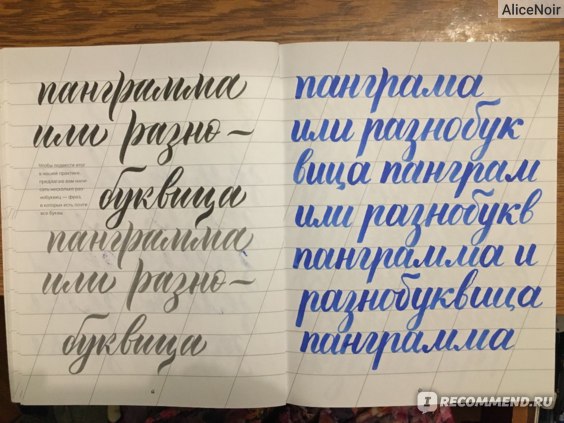 AliceNoir
панграмма
или разно –
Чтобы подвести итог
в нашей практике,
предлагаю вам напи-
сать несколько раз
нобуквиц — фраз,
в которых есть почти
все буквы
буквица
панграмма
или разно –
буквица
панграма
или разнобук
вица панграм
или разнобукв
панграмма и
разнобуквица
панграмма
IRECOMMEND.RU